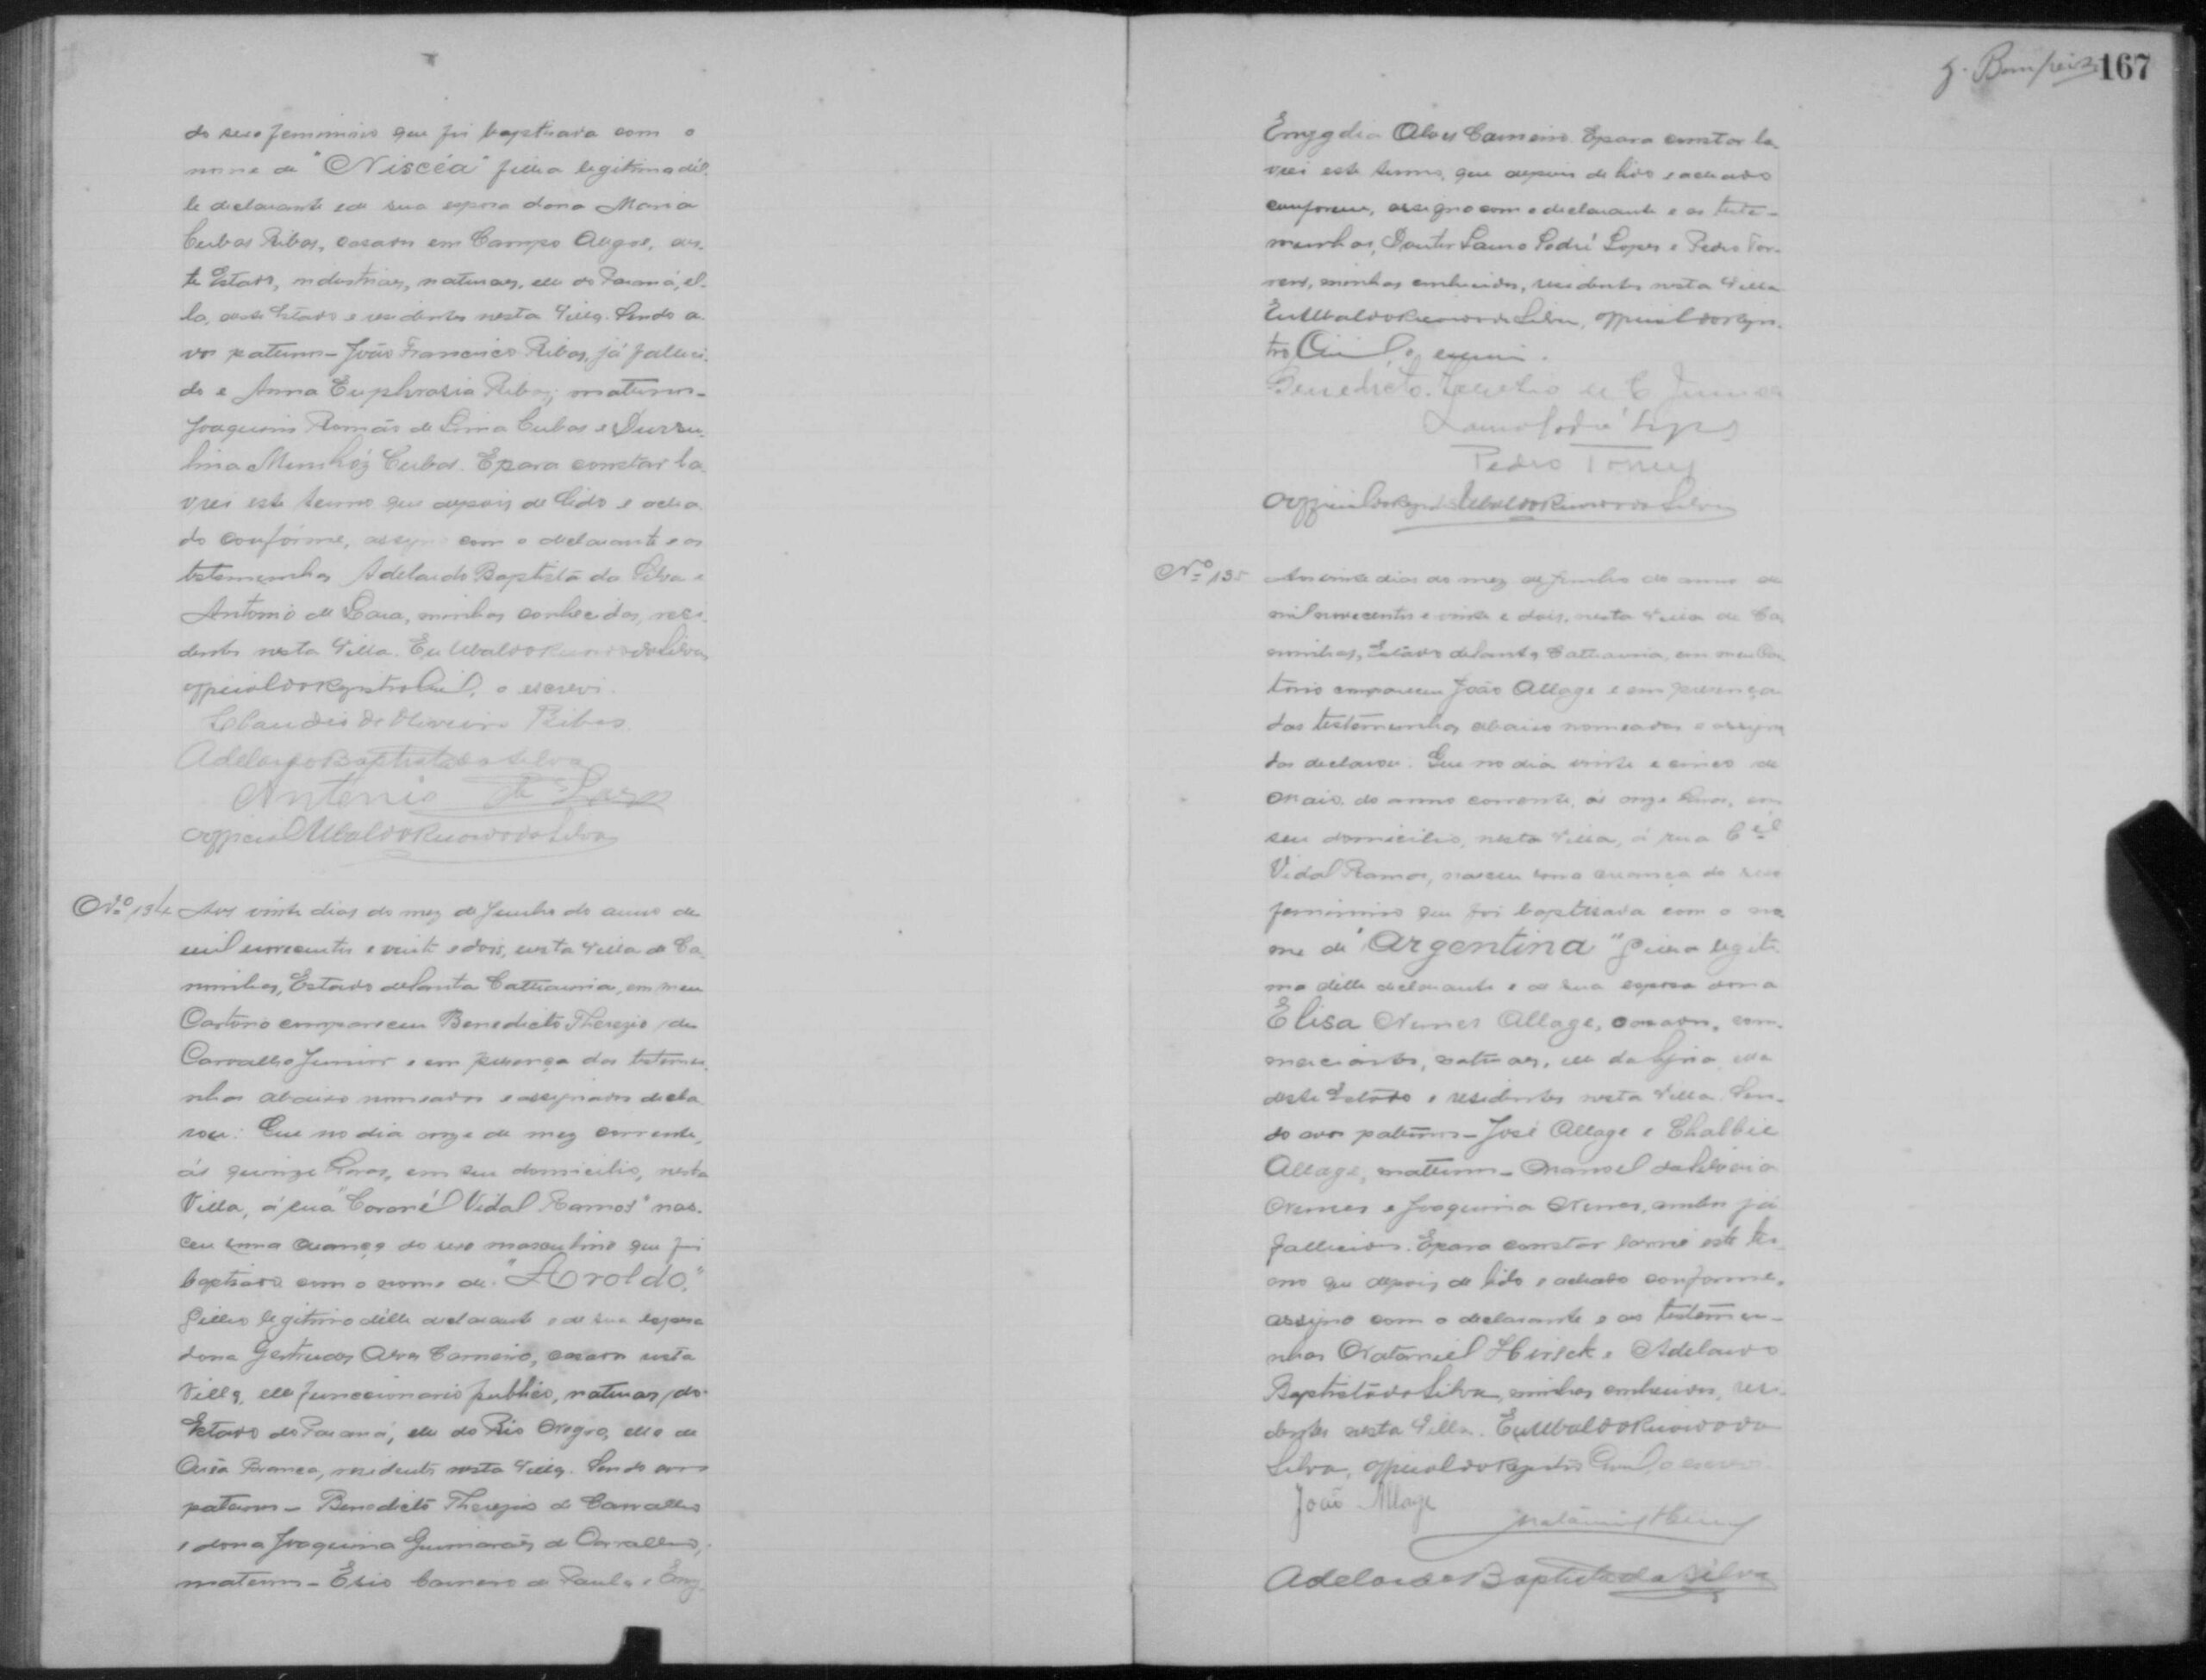 do sexo feminino que foi baptisada com o
nome de "Niscéa" filha legitima dél-
le declarante e de sua esposa dona Maria
Cubas Ribas, casados em Campo Alegre, des-
te Estado, industriaes, naturaes, elle do Paraná, el-
la, deste Estado e residentes nesta Villa. Sendo a-
vos paternos - João Francisco Ribas, já falleci-
do e Anna Euphrasia Ribas; maternos -
Joaquim Romão de Lima Cubas e
lina Munhóz Cubas. E para constar la-
vrei este termo que depois de lido e acha-
do conforme, assigno com o declarante e as
testemunhas Adelaido Baptista da Silva e
Antonio de Lara, minhas conhecidas, resi-
dentes nesta Villa. Eu Ubaldo Ricardo da Silva,
official do Registro Civil, o escrevi.
Claudio de Oliveira Ribas
Adelaido Baptista da Silva
Antonio de Lara
O official Ubaldo Ricardo da Silva
Nº 134 Aos vinte dias do mez de Junho do anno de
mil novecentos e vinte e dois, nesta Villa de Ca-
noinhas, Estado de Santa Catharina, em meu
Cartorio compareceu Benedicto Therezio de
Carvalho Junior e em presença das testemu-
nhas abaixo nomeadas e assignadas decla-
rou: Que no dia onze de mez corrente,
ás quinze horas, em seu domicilio, nesta
Villa, á rua "Coronél Vidal Ramos" nas-
ceu uma criança do sexo masculino que foi
baptisada com o nome de "Aroldo,"
filho legitimo délle declarante e de sua esposa
dona Gertrudes Alves Carneiro, casados nesta
Villa, elle funccionario publico, naturaes do
Estado do Paraná, elle do Rio Negro, ella de
Areia Branca, residentes nesta Villa. Sendo avos
paternos - Benedicto Therezio de Carvalho
e dona Joaquina Guimarães de Carvalho,
maternos - Ezio Carneiro de Paula e Emy-
167
Emygdia Alves Carneiro. E para constar la-
vrei este termo, que depois de lido e achado
conforme, assigno com o declarante e as teste-
munhas, Doutor Lauro Sodré Lopes e Pedro Tor-
res, minhas conhecidas, residentes nesta Villa
Eu Ubaldo Ricardo da Silva, official do Regis-
tro Civil, o escrevi.
Benedicto Therezio de C. Junior
Lauro Sodré Lopes
Pedro Torres
O official do Registro Ubaldo Ricardo da Silva
Nº 135 Aos vinte dias do mez de Junho do anno de
mil novecentos e vinte e dois, nesta Villa de Ca-
noinhas, Estado de Santa Catharina, em meu Car-
torio compareceu João Allage e em presença
das testemunhas abaixo nomeadas e assigna-
das declarou: Que no dia vinte e cinco de
Maio do anno corrente, ás onze horas, em
seu domicilio, nesta Villa, á rua Cel
Vidal Ramos, nasceu uma criança do sexo
feminino que foi baptisada com o no-
me de "Argentina" filha legiti-
ma délle declarante e de sua esposa dona
Elisa Nunes Allage, casados, com-
merciantes, naturaes, elle da Syria, ella
deste Estado e residentes nesta Villa. Sen-
do avos paternos - José Allage e Chalbie
Allage, maternos - Manoel da Silveira
Nunes e Joaquina Nunes, ambos já
fallecidos. E para constar lavrei este ter-
mo que depois de lido e achado conforme,
assigno com o declarante e as testemu-
nhas Nataniel Hirsck e Adelaido
Baptista da Silva, minhas conhecidas, resi-
dentes nesta Villa. Eu Ubaldo Ricardo da
Silva, official do Registro Civil, o escrevi.
João Allage
Adelaido Baptista da Silva